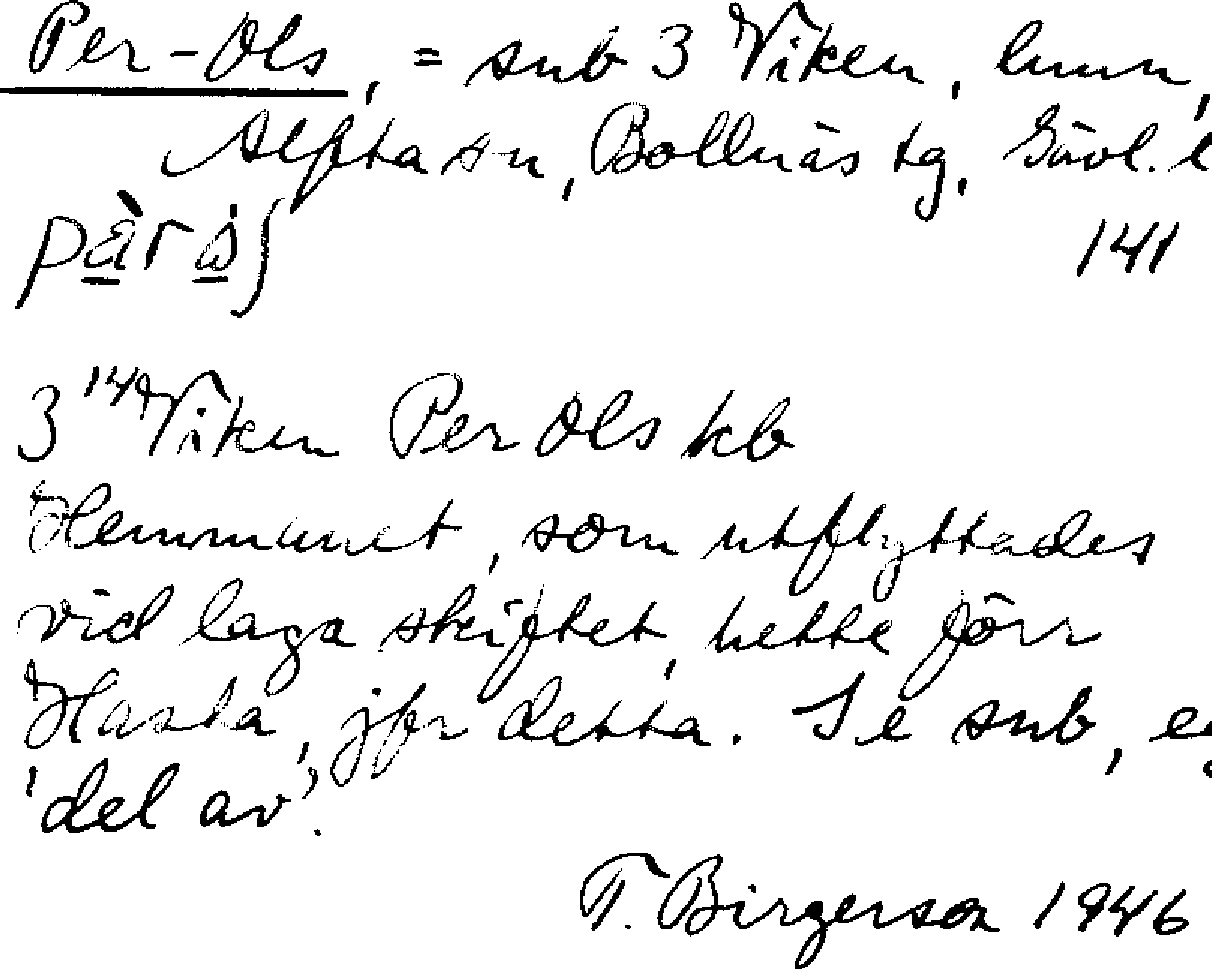 Per-Ols, = sub 3 Viken, hmn,
Alfta sn, Bollnäs tg, Gävl. l
pàrås∫
141
3¹⁴ Viken Per Ols kb
Hemmanet, som utflyttades
vid laga skiftet, hette förr
Hasta, jfr detta. Se sub, eg
'del av'.
T. Birgerson 1946